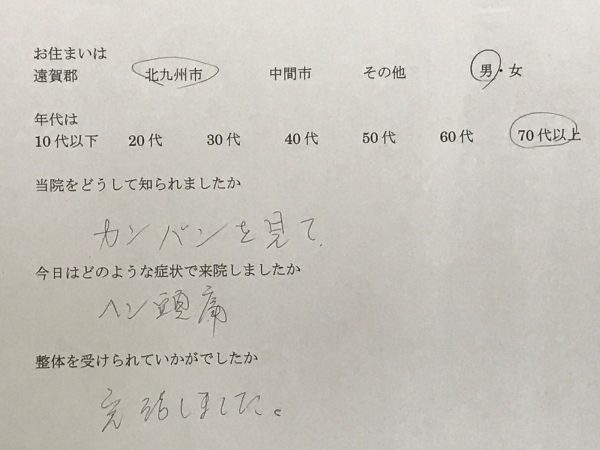 お住まいは
遠賀郡 北九州市 中間市 その他 男・女
年代は
10代以下 20代 30代 40代 50代 60代 70代以上
当院をどうして知られましたか
カンバンを見て、
今日はどのような症状で来院しましたか
ヘン頭痛
整体を受けられていかがでしたか
完治しました。